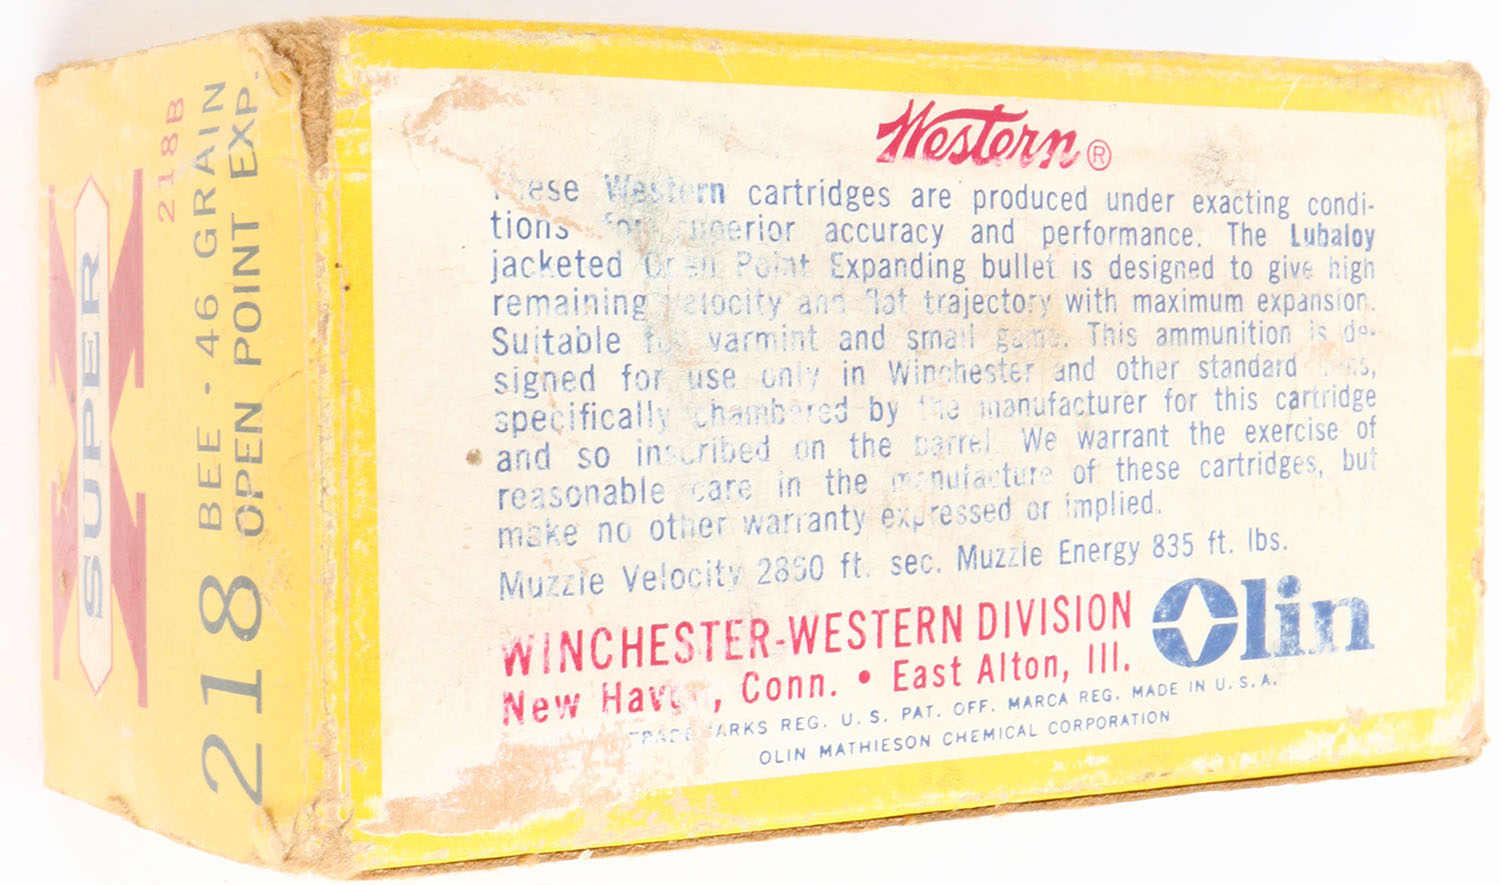 SUPER X
218B
218 BEE · 46 GRAIN
OPEN POINT EXP.
Western®
These Western cartridges are produced under exacting condi-
tions for superior accuracy and performance. The Lubaloy
jacketed Open Point Expanding bullet is designed to give high
remaining velocity and flat trajectory with maximum expansion.
Suitable for varmint and small game. This ammunition is de-
signed for use only in Winchester and other standard
specifically chambered by the manufacturer for this cartridge
and so inscribed on the barrel. We warrant the exercise of
reasonable care in the manufacture of these cartridges, but
make no other warranty expressed or implied.
Muzzle Velocity 2860 ft. sec. Muzzle Energy 835 ft. lbs.
WINCHESTER-WESTERN DIVISION
New Haven, Conn. • East Alton, Ill.
Olin
TRADEMARKS REG. U. S. PAT. OFF. MARCA REG. MADE IN U. S. A.
OLIN MATHIESON CHEMICAL CORPORATION